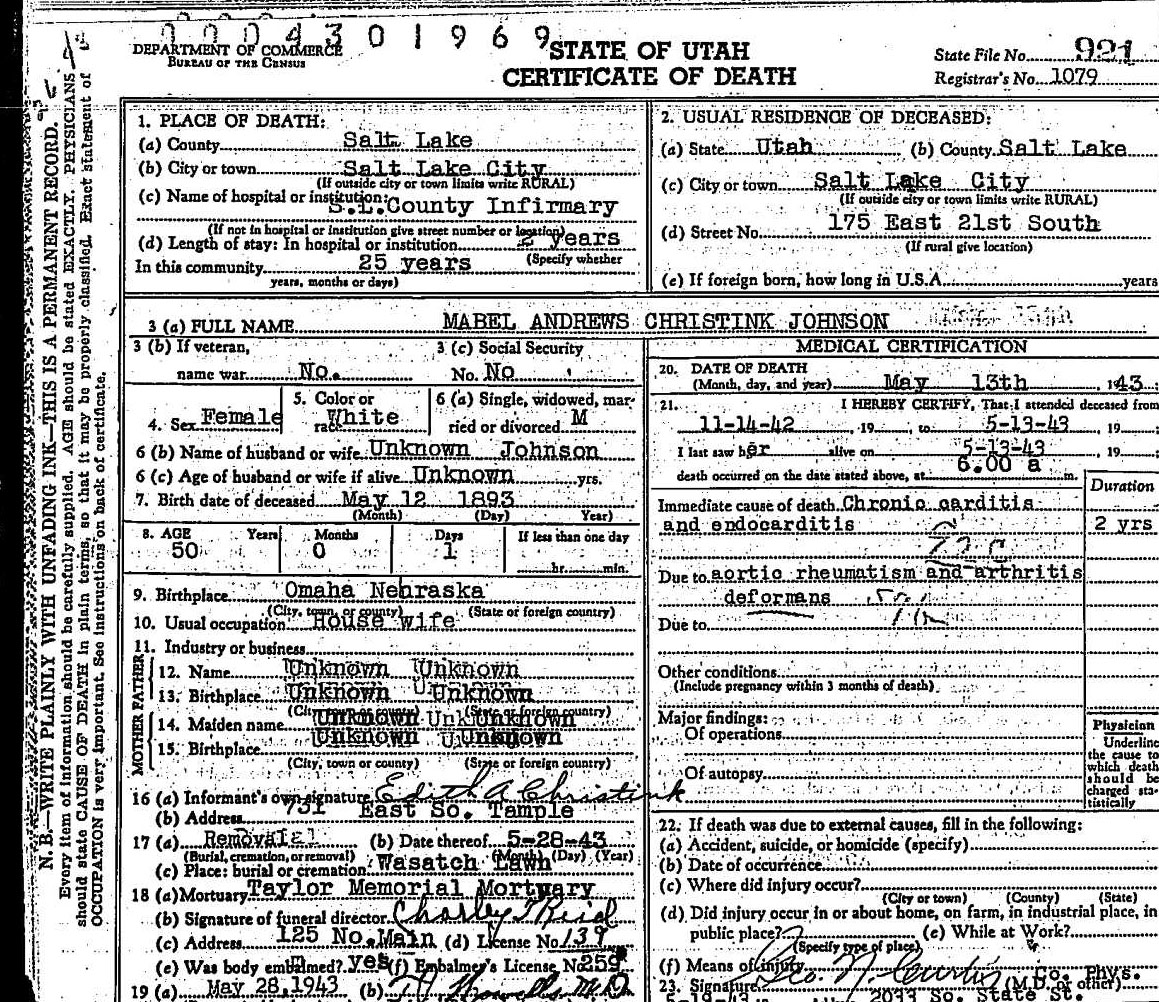 0004301969
DEPARTMENT OF COMMERCE
BUREAU OF THE CENSUS
STATE OF UTAH
CERTIFICATE OF DEATH
State File No. 921
Registrar's No. 1079
N. B.—WRITE PLAINLY WITH UNFADING INK—THIS IS A PERMANENT RECORD.
Every item of information should be carefully supplied. AGE should be stated EXACTLY. PHYSICIANS
should state CAUSE OF DEATH in plain terms, so that it may be properly classified. Exact statement of
OCCUPATION is very important. See instructions on back of certificate.
1. PLACE OF DEATH:
(a) County Salt Lake
(b) City or town Salt Lake City
(If outside city or town limits write RURAL)
(c) Name of hospital or institution:
S.L.County Infirmary
(If not in hospital or institution give street number or location)
(d) Length of stay: In hospital or institution 2 years
(Specify whether
In this community 25 years
years, months or days)
2. USUAL RESIDENCE OF DECEASED:
(a) State Utah (b) County Salt Lake
(c) City or town Salt Lake City
(If outside city or town limits write RURAL)
(d) Street No. 175 East 21st South
(If rural give location)
(e) If foreign born, how long in U.S.A. years
3 (a) FULL NAME MABEL ANDREWS CHRISTINK JOHNSON
3 (b) If veteran, 3 (c) Social Security
name war No. No. No
4. Sex Female 5. Color or race White 6 (a) Single, widowed, married or divorced M
6 (b) Name of husband or wife Unknown Johnson
6 (c) Age of husband or wife if alive Unknown yrs.
7. Birth date of deceased May 12 1893
(Month) (Day) Year)
8. AGE Years Months Days If less than one day
50 0 1 hr. min.
9. Birthplace Omaha Nebraska
(City, town, or county) (State or foreign country)
10. Usual occupation House wife
11. Industry or business
FATHER
12. Name Unknown Unknown
13. Birthplace Unknown Unknown
(City, town or county) (State or foreign country)
MOTHER
14. Maiden name Unknown Unknown
15. Birthplace Unknown Unknown
(City, town or county) (State or foreign country)
16 (a) Informant's own signature Edith A Christink
(b) Address 731 East So. Tample
17 (a) Removal (b) Date thereof 5-28-43
(Burial, cremation, or removal) (Month) (Day) (Year)
(c) Place: burial or cremation Wasatch Lawn
18 (a) Mortuary Taylor Memorial Mortuary
(b) Signature of funeral director Charley T Reid
(c) Address 125 No.Main (d) License No. 139
(e) Was body embalmed? yes (f) Embalmer's License No. 259
19 (a) May 28,1943 (b) M.D.
MEDICAL CERTIFICATION
20. DATE OF DEATH
(Month, day, and year) May 13th, 1943
21. I HEREBY CERTIFY, That I attended deceased from
11-14-42, 19 , to 5-13-43, 19 ;
I last saw her alive on 5-13-43, 19 ;
death occurred on the date stated above, at 6.00 a m.
Duration
Immediate cause of death Chronic carditis
and endocarditis 2 yrs
Due to aortic rheumatism and arthritis
deformans
Due to
Other conditions
(Include pregnancy within 3 months of death)
Major findings:
Of operations
Of autopsy
Physician
Underline
the cause to
which death
should be
charged sta-
tistically
22. If death was due to external causes, fill in the following:
(a) Accident, suicide, or homicide (specify)
(b) Date of occurrence
(c) Where did injury occur?
(City or town) (County) (State)
(d) Did injury occur in or about home, on farm, in industrial place, in
public place? (e) While at Work?
(Specify type of place)
(f) Means of injury
23. Signature Geo N Curtis Co. Phys.
(M.D. or other)
5-19-43 2033 So. State St.